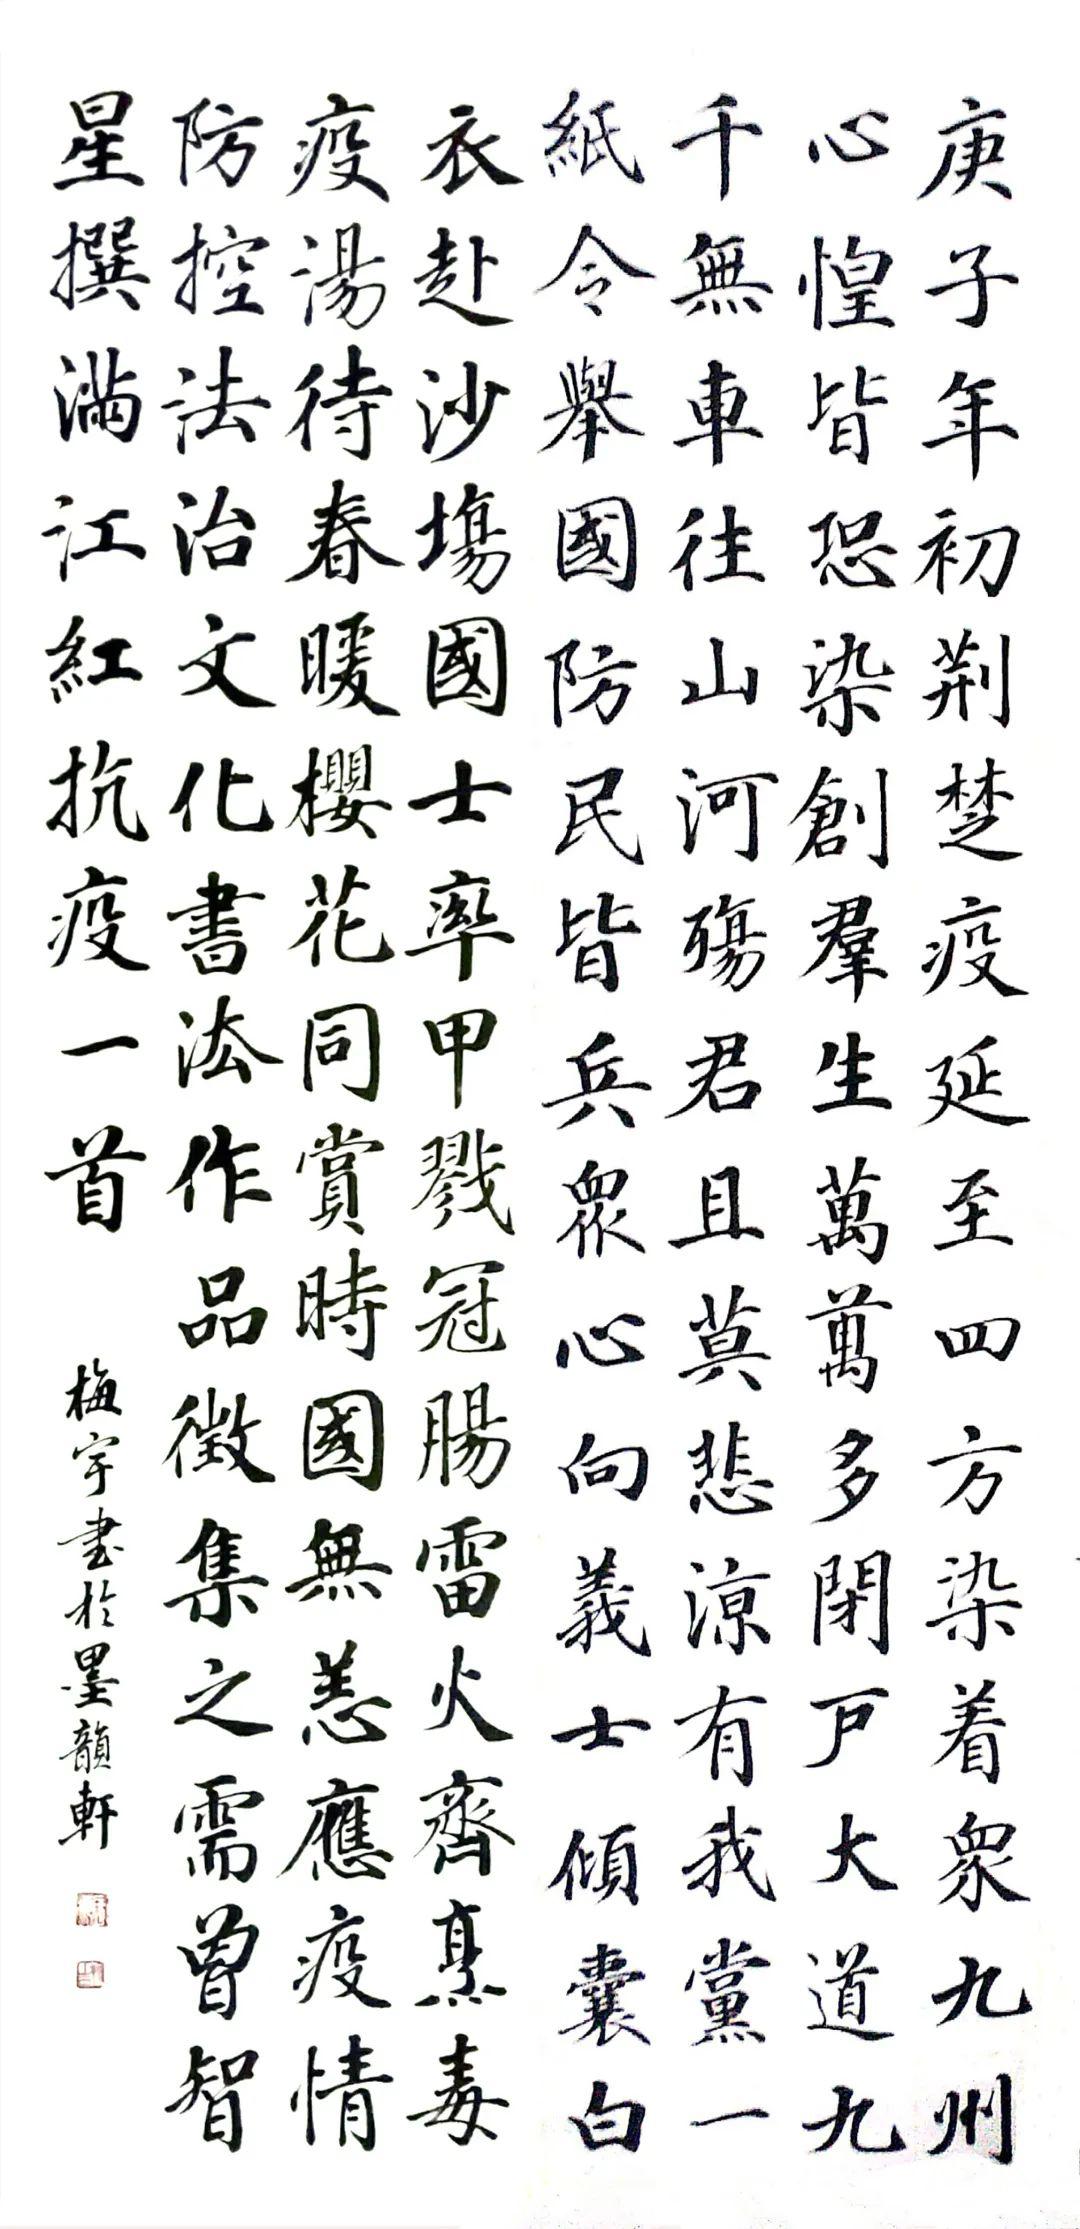 庚子年初荆楚疫延至四方染着衆九州
心惶皆恐染創羣生萬萬多閉戸大道九
千無車往山河殤君且莫悲涼有我黨一
紙令舉國防民皆兵衆心向義士傾囊白
衣赴沙塲國士率甲戮冠腸雷火齊烹毒
疫湯待春暖櫻花同賞時國無恙應疫情
防控法治文化書法作品徵集之需曾智
星撰滿江紅抗疫一首
梅宇書於墨韻軒